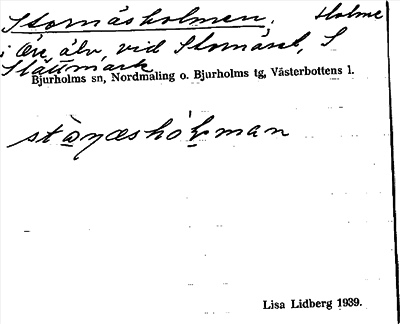 Stornäsholmen. Holme
i Öre älv, vid Stornäset, S
Slättmark
Bjurholms sn, Nordmaling o. Bjurholms tg, Västerbottens l.
Lisa Lidberg 1939.